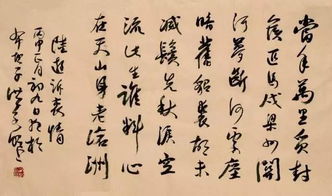 當年萬里覓封
侯匹馬戍梁州關
河夢斷何處塵
暗舊貂裘胡未
滅鬢先秋淚空
流此生誰料心
在天山身老滄洲
陸游訴衷情
丙申正月初九日於